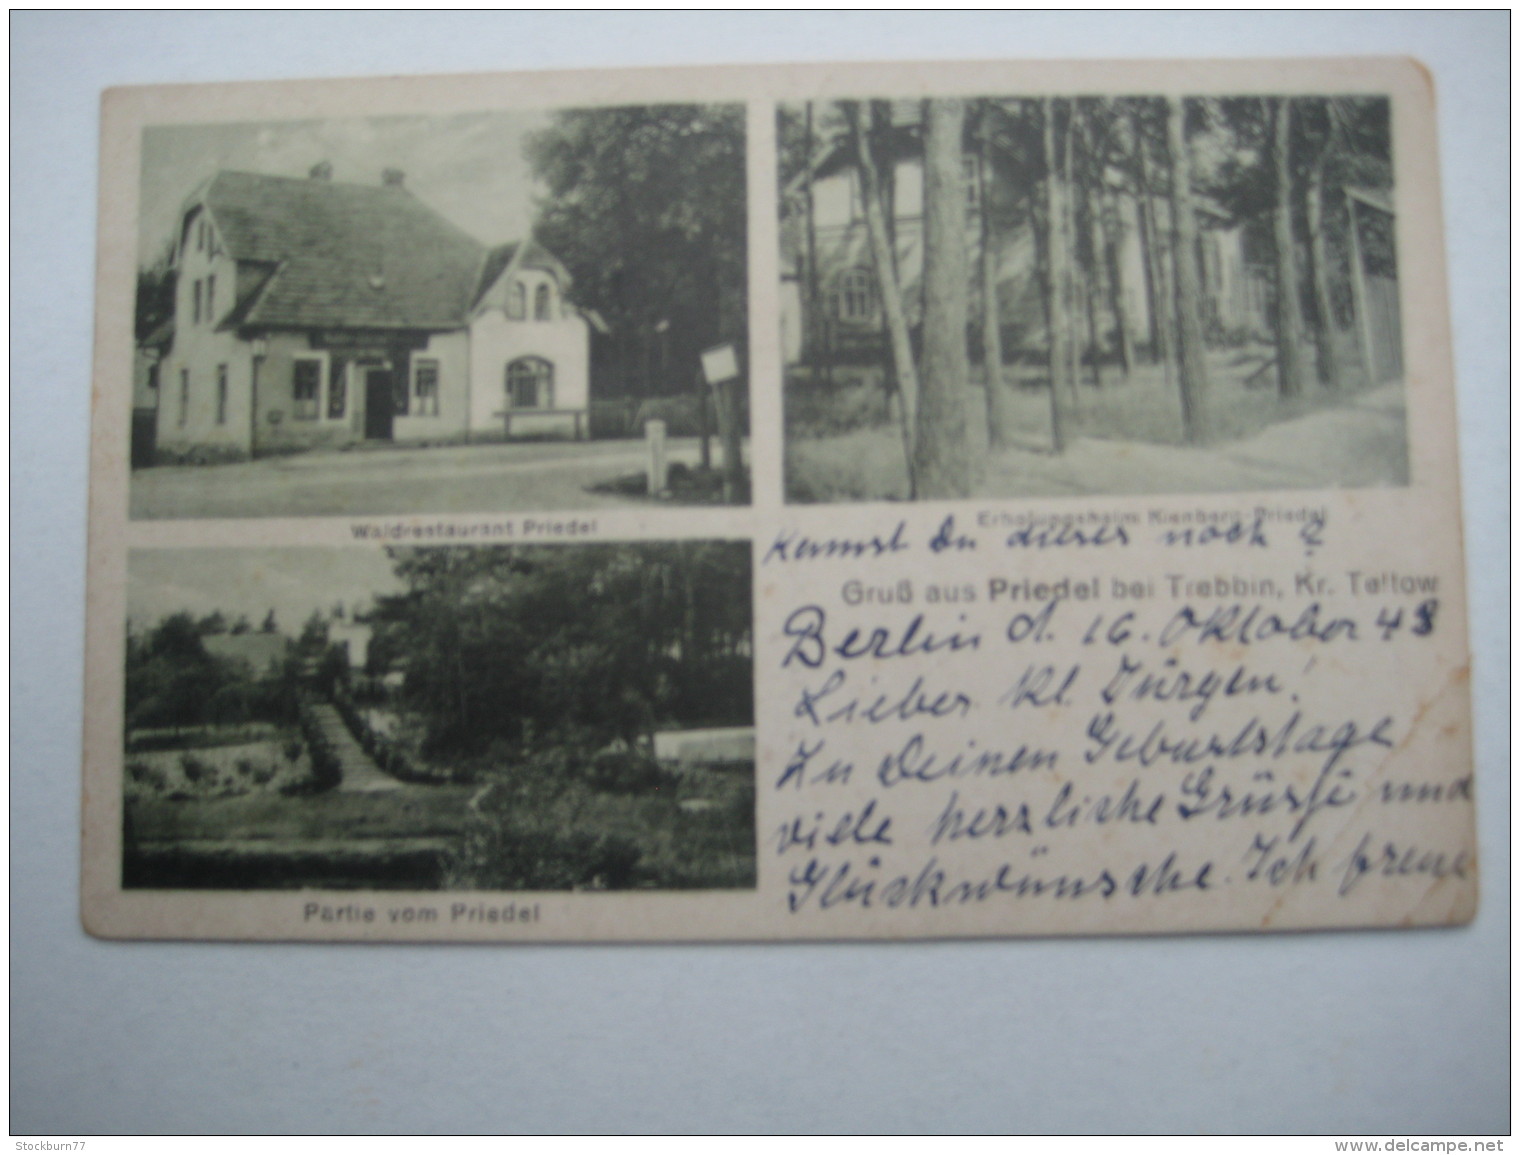 Waldrestaurant Priedel
Erholungsheim Kienberg-Priedel
Kennst Du dieses noch ?
Gruß aus Priedel bei Trebbin, Kr. Teltow
Berlin d. 16. Oktober 43
Lieber kl. Jürgen!
Zu Deinen Geburtstage
viele herzliche Grüsse und
Glückwünsche. Ich freue
Partie vom Priedel
Stockburn77
www.delcampe.net